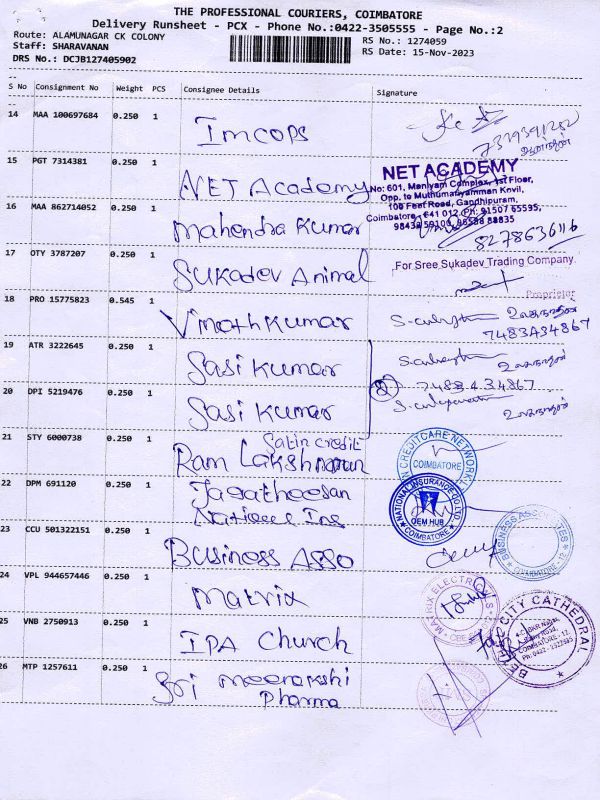 THE PROFESSIONAL COURIERS, COIMBATORE
Delivery Runsheet - PCX - Phone No.:0422-3505555 - Page No.:2
Route: ALAMUNAGAR CK COLONY
RS No.: 1274059
Staff: SHARAVANAN
RS Date: 15-Nov-2023
DRS No.: DCJB127405902
S No Consignment No Weight PCS Consignee Details Signature
14 MAA 100697684 0.250 1 Imcops
15 PGT 7314381 0.250 1 NET Academy
NET ACADEMY
No: 601, Maniyam Complex, 1st Floor,
Opp. to Muthumariyamman Kovil,
100 Feet Road, Gandhipuram,
Coimbatore - 641 012. Ph: 91507 65595,
16 MAA 862714052 0.250 1 Mahendra Kumar
8278636116
17 OTY 3787207 0.250 1 Sukadev Animal
For Sree Sukadev Trading Company
Proprietor
18 PRO 15775823 0.545 1 Vinothkumar
7483434867
19 ATR 3222645 0.250 1 Sasi Kumar
2
7483434867
20 DPI 5219476 0.250 1 Sasi Kumar
21 STY 6000738 0.250 1 Satin Credit
Ram Lakshmanan
CREDITCARE NETWORK
COIMBATORE
22 DPM 691120 0.250 1 Jagatheesan
National Ins
NATIONAL INSURANCE CO. LTD.
OEM HUB
COIMBATORE
23 CCU 501322151 0.250 1 Business Asso
BUSINESS ASSOCIATES
COIMBATORE
24 VPL 944657446 0.250 1 Matrix
MATRIX ELECTRONICS
25 VNB 2750913 0.250 1 IPA Church
CITY CATHEDRAL
26 MTP 1257611 0.250 1 Sri Meenakshi
Pharma